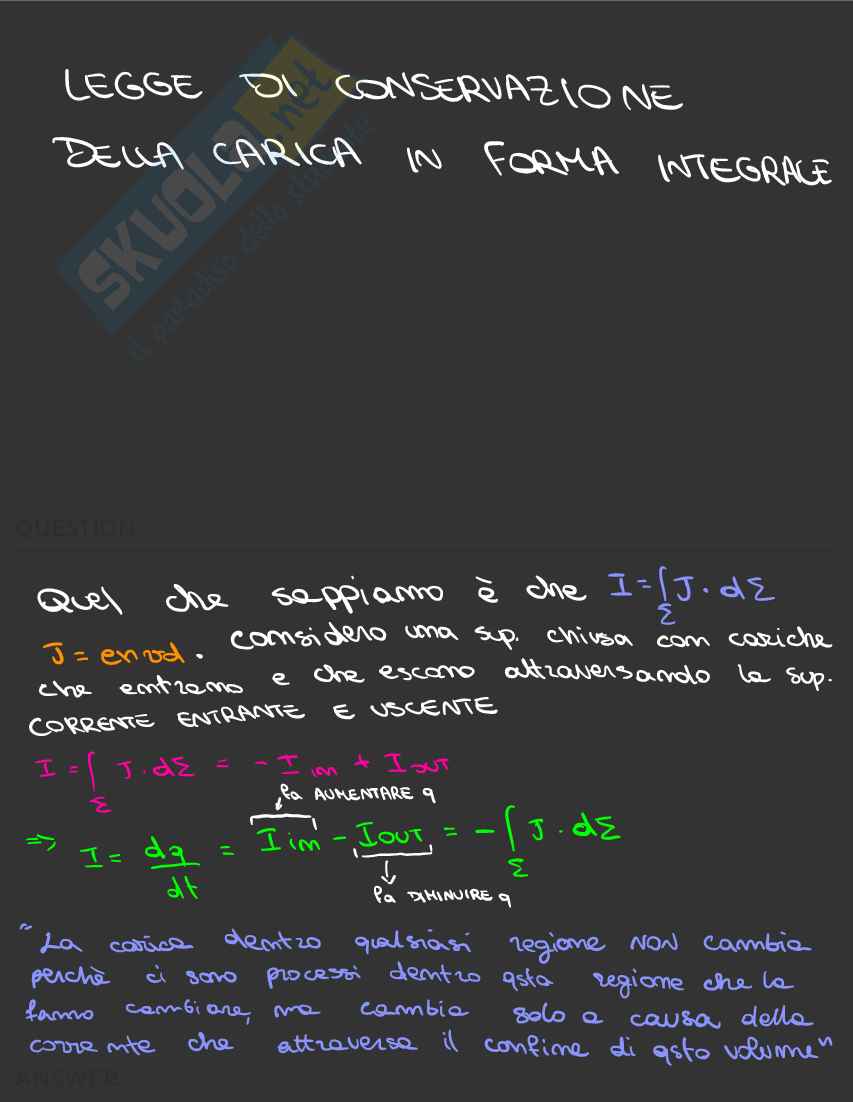 LEGGE DI CONSERVAZIONE
DELLA CARICA IN FORMA INTEGRALE
SKUOLA.net
il paradiso dello studente
QUESTION
Quel che sappiamo è che I=∫_Σ J · dΣ
J = en vd. Considero una sup. chiusa con cariche
che entrano e che escono attraversando la sup.
CORRENTE ENTRANTE E USCENTE
I = ∫_Σ J · dΣ = - I in + I OUT
fa AUMENTARE q
=> I = dq/dt = I in - I OUT = - ∫_Σ J · dΣ
fa DIMINUIRE q
"La carica dentro qualsiasi regione NON cambia
perchè ci sono processi dentro qsta regione che la
fanno cambiare, ma cambia solo a causa della
corrente che attraversa il confine di qsto volume"
ANSWER